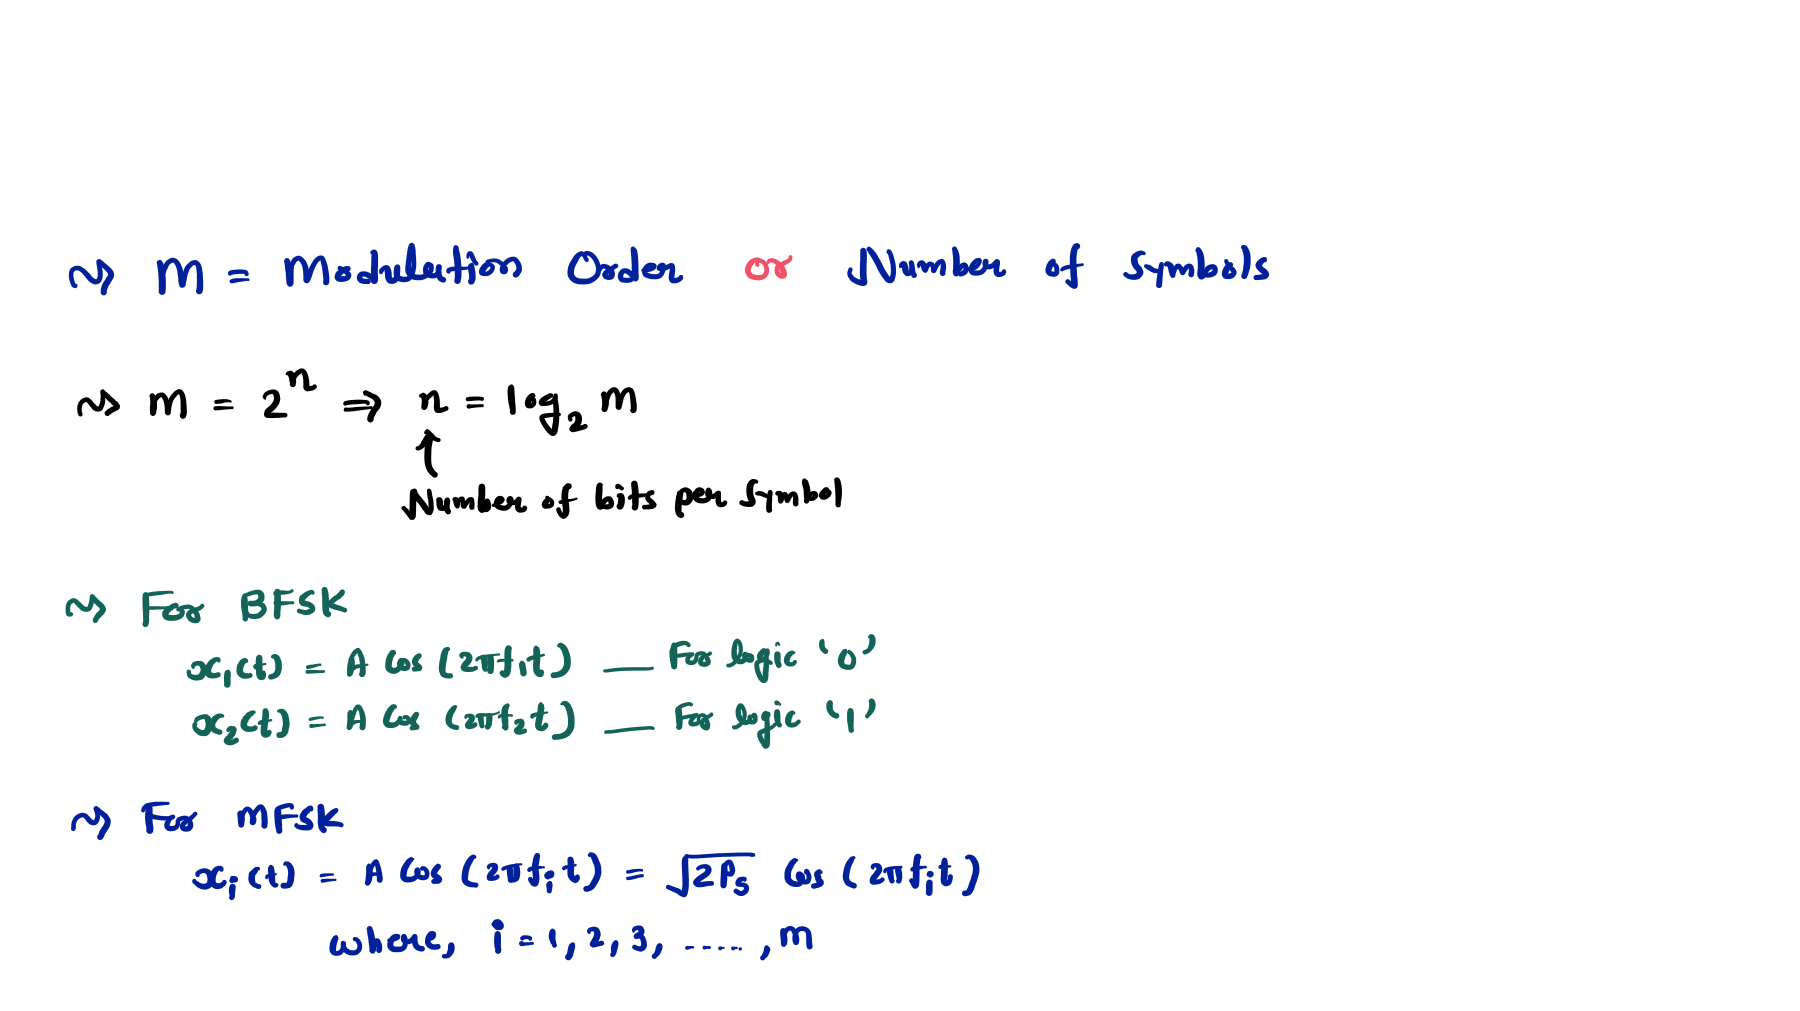 ~> M = Modulation Order or Number of Symbols
~> M = 2^n ⇒ n = log₂ M
↑
Number of bits per Symbol
~> For BFSK
x₁(t) = A Cos (2πf₁t) __ For logic '0'
x₂(t) = A Cos (2πf₂t) __ For logic '1'
~> For MFSK
xᵢ(t) = A Cos (2πfᵢt) = √2Pₛ Cos (2πfᵢt)
where, i = 1, 2, 3, ....., M